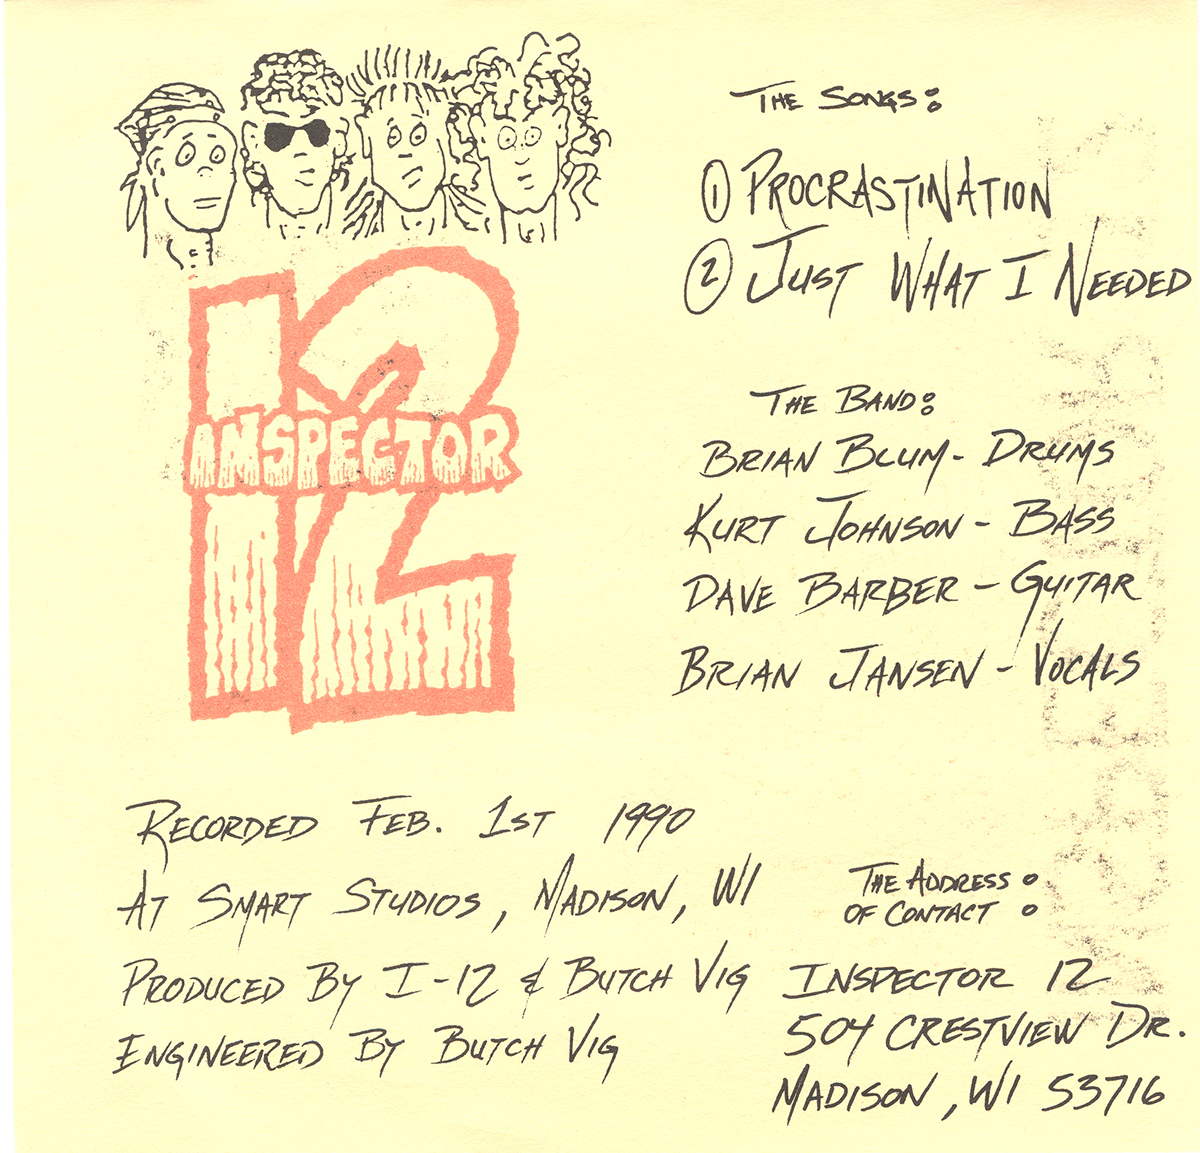 12
INSPECTOR
THE SONGS:
① PROCRASTINATION
② JUST WHAT I NEEDED
THE BAND:
BRIAN BLUM - DRUMS
KURT JOHNSON - BASS
DAVE BARBER - GUITAR
BRIAN JANSEN - VOCALS
RECORDED FEB. 1ST 1990
AT SMART STUDIOS, MADISON, WI
PRODUCED BY I-12 & BUTCH VIG
ENGINEERED BY BUTCH VIG
THE ADDRESS
OF CONTACT :
INSPECTOR 12
504 CRESTVIEW DR.
MADISON, WI 53716